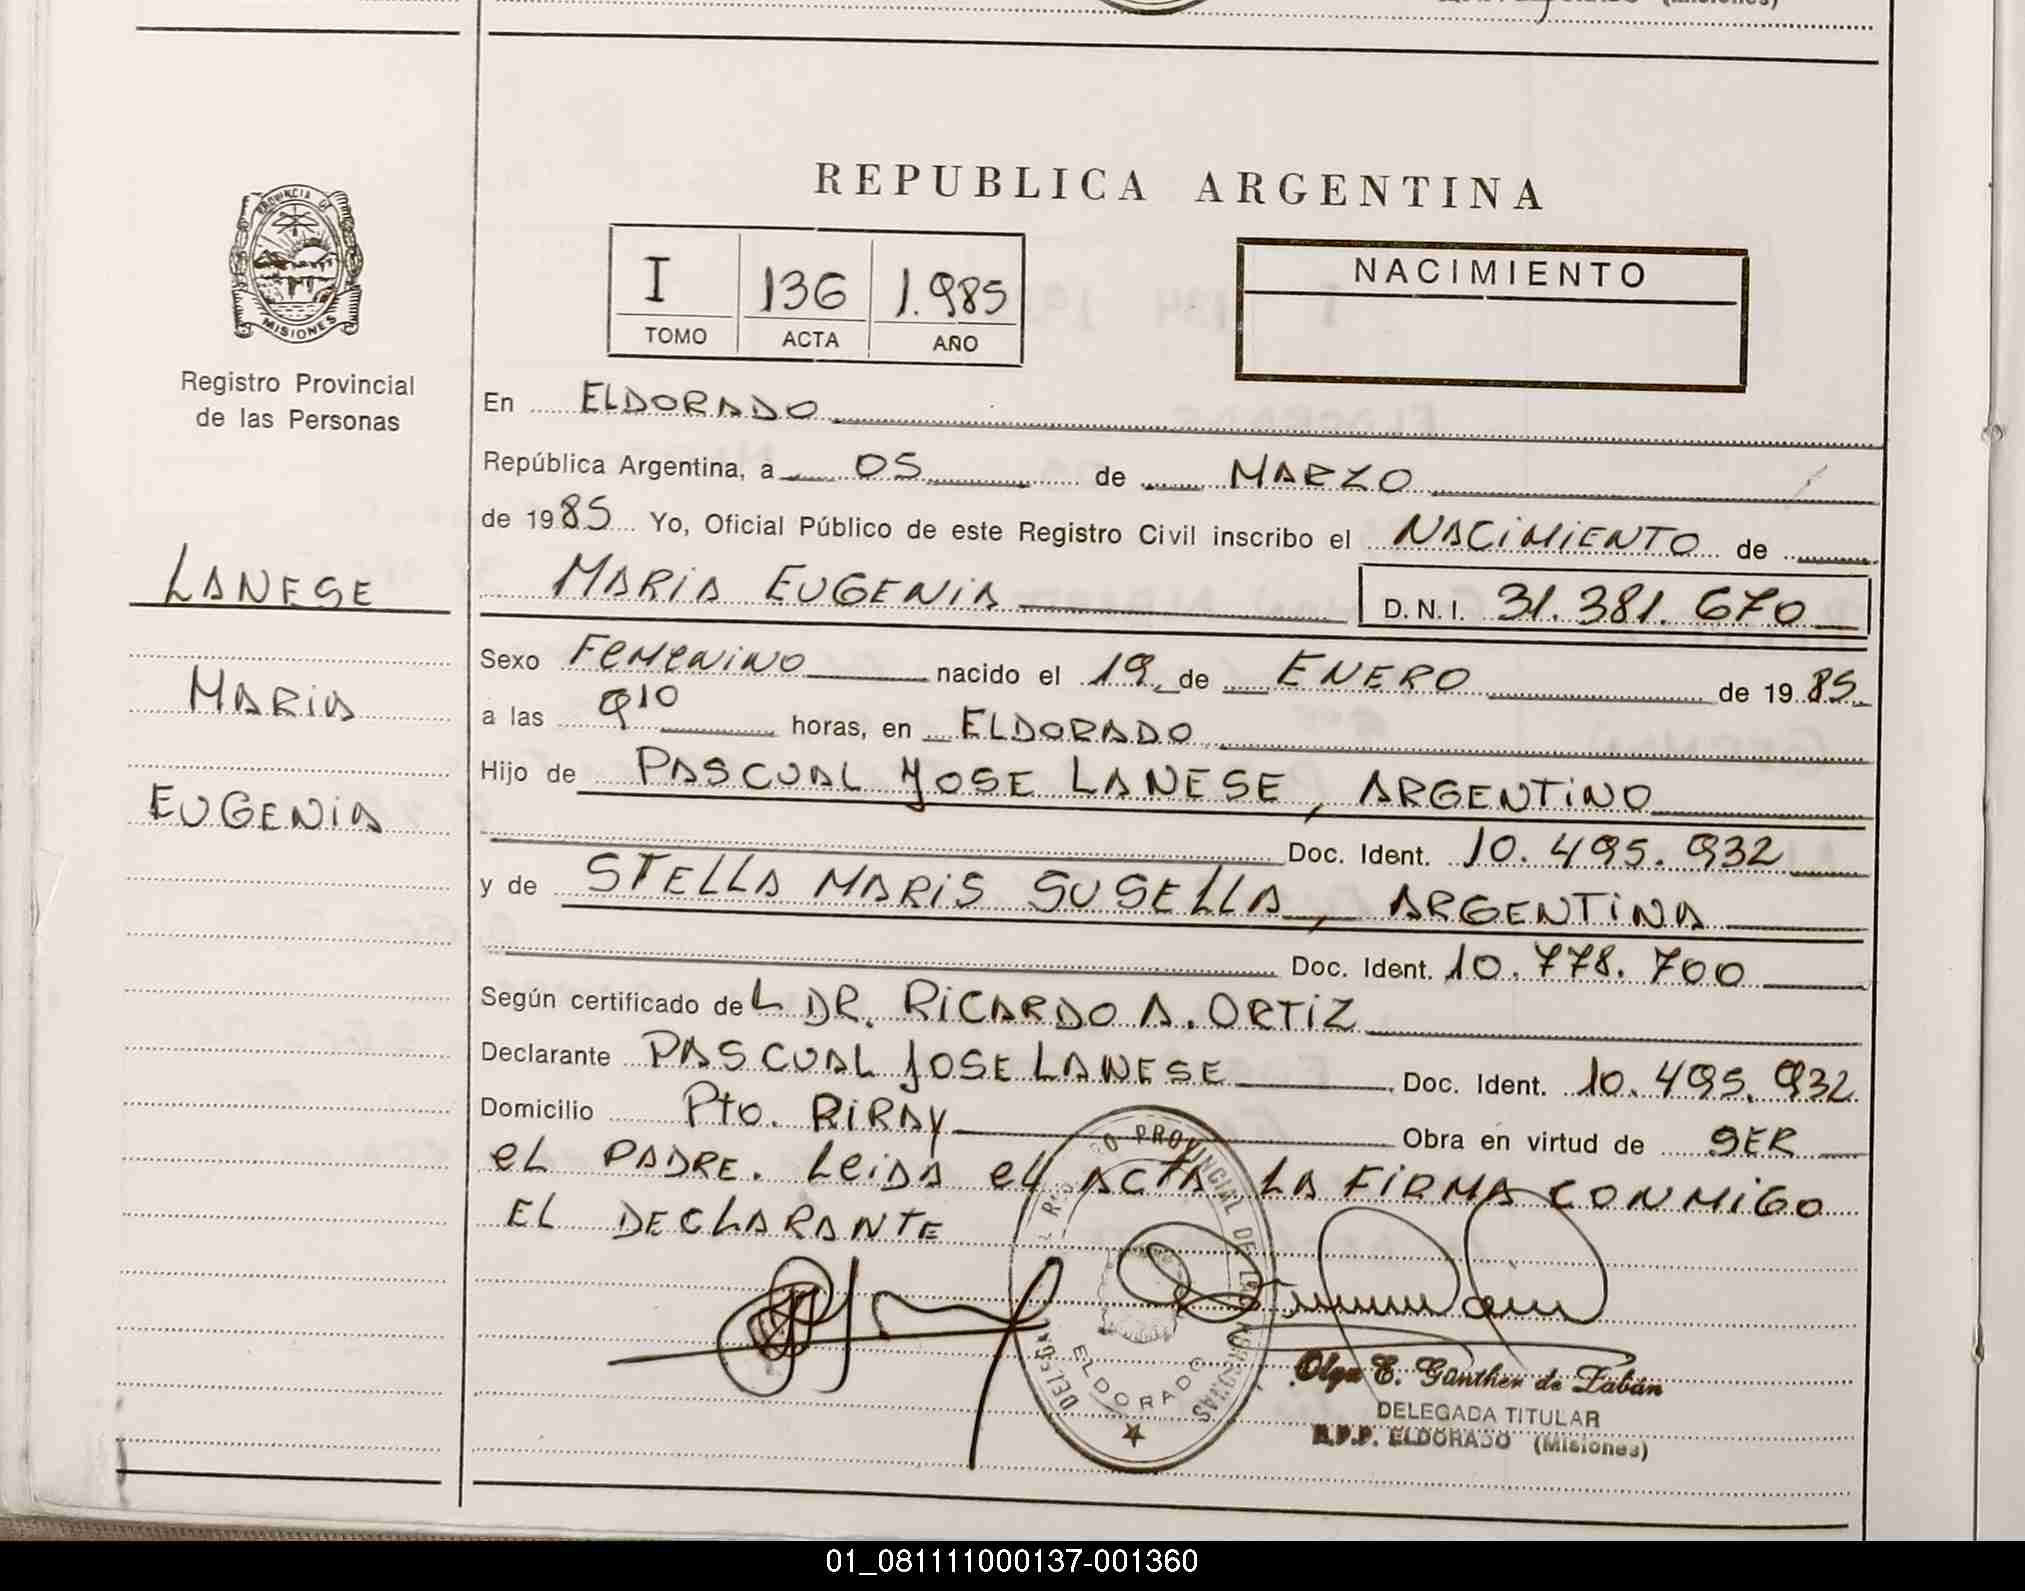 REPUBLICA ARGENTINA
PROVINCIA DE
MISIONES
Registro Provincial
de las Personas
I 136 1.985
TOMO ACTA AÑO
NACIMIENTO
En ELDORADO
República Argentina, a 05 de MARZO
de 1985 Yo, Oficial Público de este Registro Civil inscribo el NACIMIENTO de
MARIA EUGENIA D.N.I. 31.381.670
LANESE
MARIA
EUGENIA
Sexo FEMENINO nacido el 19 de ENERO de 1985
a las 9 10 horas, en ELDORADO
Hijo de PASCUAL JOSE LANESE, ARGENTINO
Doc. Ident. 10.495.932
y de STELLA MARIS SUSELLA, ARGENTINA
Doc. Ident. 10.778.700
Según certificado deL DR. RICARDO A. ORTIZ
Declarante PASCUAL JOSE LANESE Doc. Ident. 10.495.932
Domicilio Pto. PIRAY Obra en virtud de SER
eL PADRE. LeiDA eL ACTA LA FIRMA CONMIGO
EL DECLARANTE
PROVINCIAL DE LAS PERSONAS
ELDORADO
Olga E. Günther de Zabán
DELEGADA TITULAR
R.P.P. ELDORADO (Misiones)
01_081111000137-001360